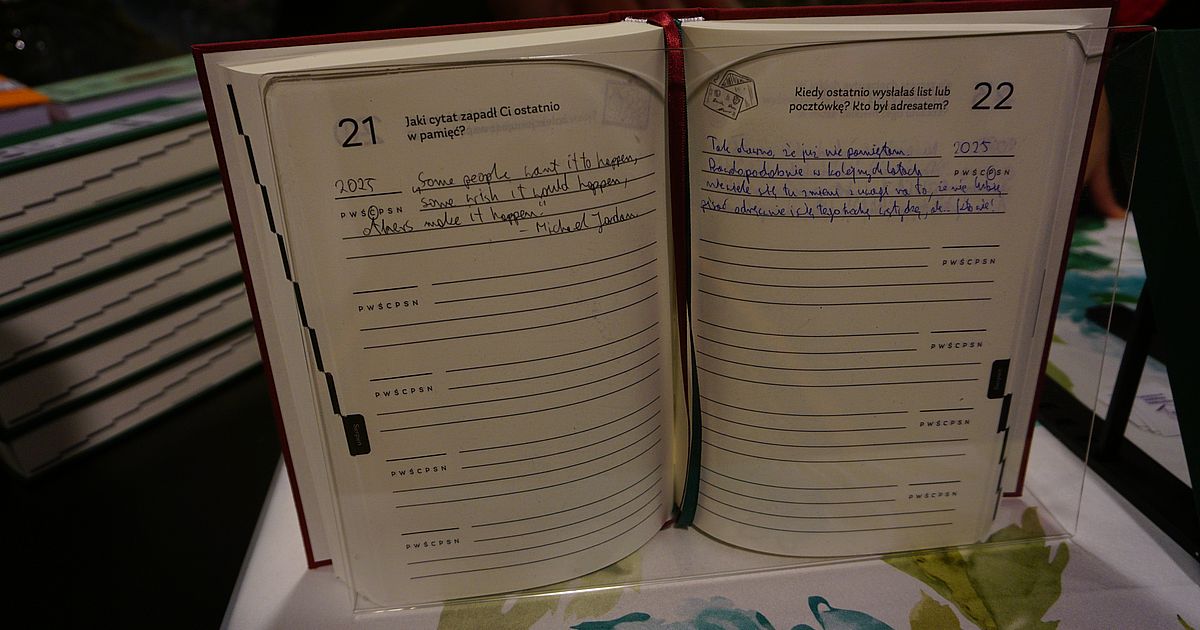 21
Jaki cytat zapadł Ci ostatnio
w pamięć?
2025
„Some people want it to happen,
some wish it would happen,
P W Ś C P S N
others make it happen."
- Michael Jordan
P W Ś C P S N
P W Ś C P S N
P W Ś C P S N
P W Ś C P S N
Sierpień
Kiedy ostatnio wysłałaś list lub
pocztówkę? Kto był adresatem?
22
Tak dawno, że już nie pamiętam.
2025
Prawdopodobnie w kolejnych latach
P W Ś C P S N
niewiele się tu zmieni z uwagi na to, że nie lubię
pisać odręcznie i się tego trochę wstydzę, ok...
P W Ś C P S N
P W Ś C P S N
P W Ś C P S N
P W Ś C P S N
Sierpień